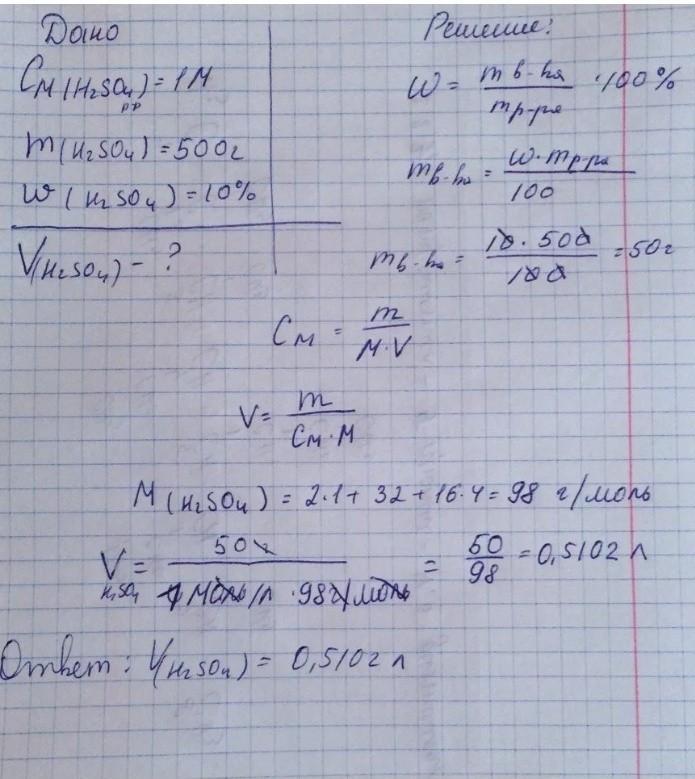 Дано
C_M (H₂SO₄) = 1 M
р-р
m (H₂SO₄) = 500 г
ω (H₂SO₄) = 10%
V(H₂SO₄) - ?
Решение:
ω = m в-ва / m р-ра · 100%
m в-ва = ω · m р-ра / 100
m в-ва = 10 · 500 / 100 = 50 г
C_M = m / M·V
V = m / C_M · M
M (H₂SO₄) = 2·1 + 32 + 16·4 = 98 г/моль
V H₂SO₄ = 50 г / 1 моль/л · 98 г/моль = 50 / 98 = 0,5102 л
Ответ: V(H₂SO₄) = 0,5102 л